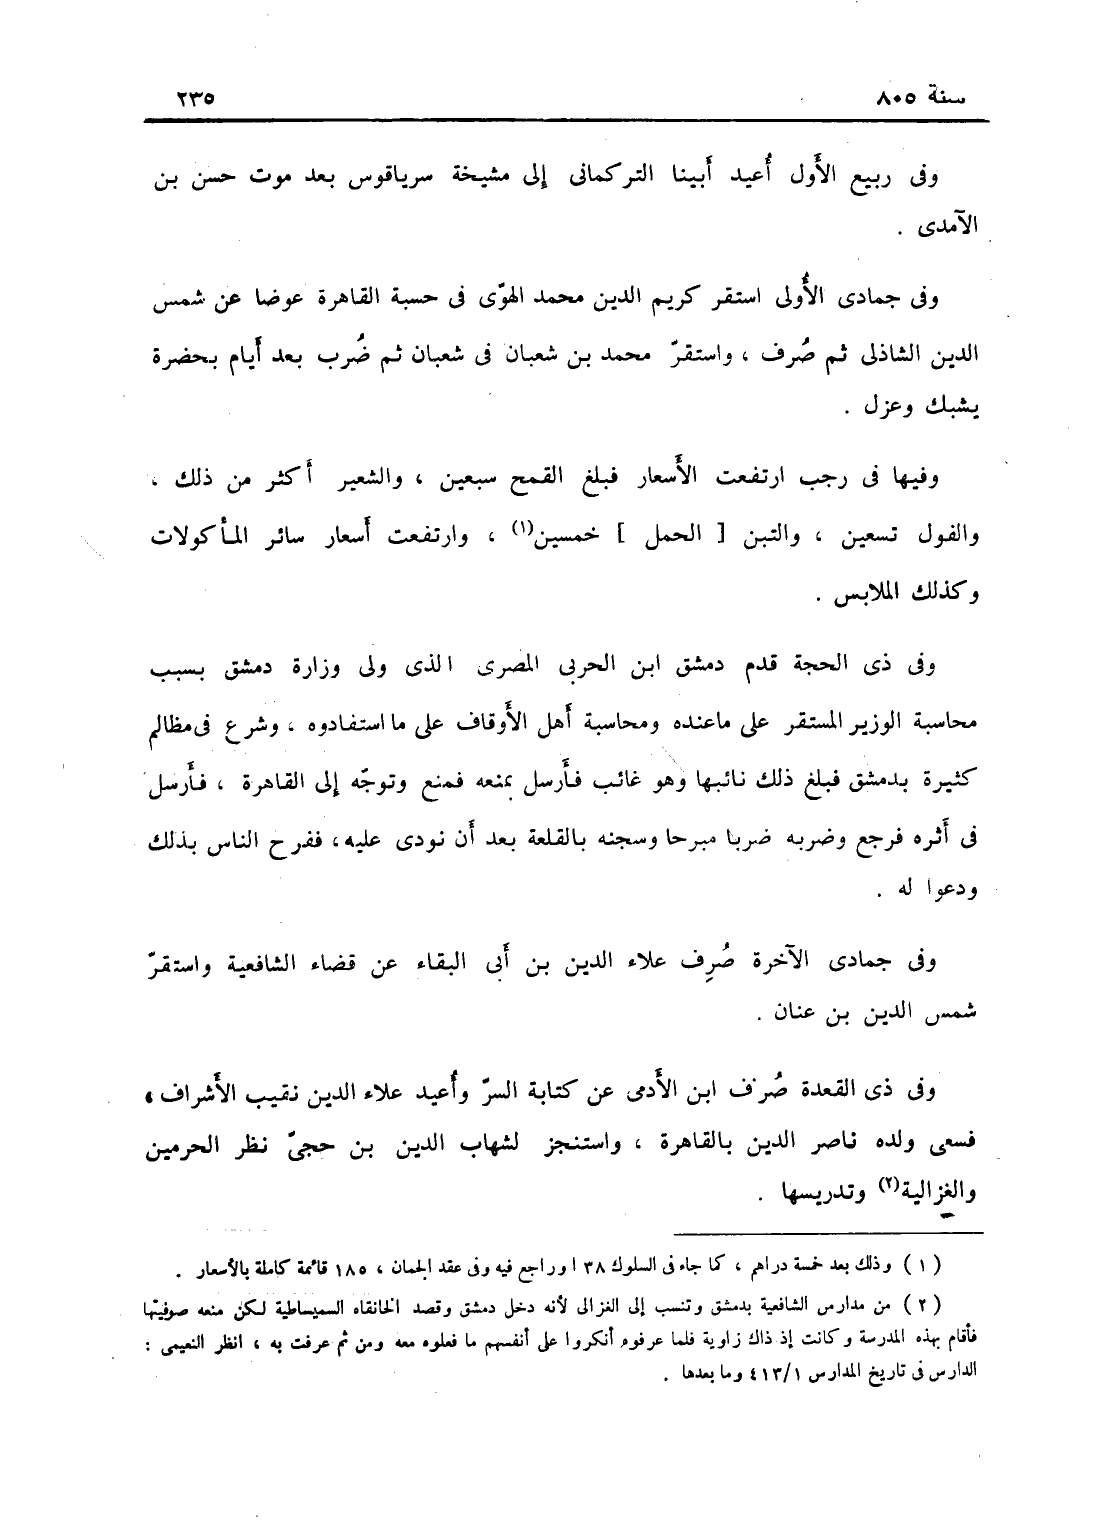 سنة ٨٠٥ ٢٣٥
وفى ربيع الأَول أُعيد أَبينا التركمانى إلى مشيخة سرياقوس بعد موت حسن بن
الآمدى .
وفى جمادى الأُولى استقر كريم الدين محمد الهوّى فى حسبة القاهرة عوضا عن شمس
الدين الشاذلى ثم صُرف ، واستقرّ محمد بن شعبان فى شعبان ثم ضُرب بعد أَيام بحضرة
يشبك وعزل .
وفيها فى رجب ارتفعت الأَسعار فبلغ القمح سبعين ، والشعير أكثر من ذلك ،
والفول تسعين ، والتبن [ الحمل ] خمسين(١) ، وارتفعت أَسعار سائر المأكولات
وكذلك الملابس .
وفى ذى الحجة قدم دمشق ابن الحربى المصرى الذى ولى وزارة دمشق بسبب
محاسبة الوزير المستقر على ماعنده ومحاسبة أَهل الأَوقاف على ما استفادوه ، وشرع فى مظالم
كثيرة بدمشق فبلغ ذلك نائبها وهو غائب فأَرسل بمنعه فمنع وتوجّه إلى القاهرة ، فأَرسل
فى أَثره فرجع وضربه ضربا مبرحا وسجنه بالقلعة بعد أَن نودى عليه، ففرح الناس بذلك
ودعوا له .
وفى جمادى الآخرة صُرِف علاء الدين بن أَبى البقاء عن قضاء الشافعية واستقرّ
شمس الدين بن عنان .
وفى ذى القعدة صُرف ابن الأَدمى عن كتابة السرّ وأُعيد علاء الدين نقيب الأَشراف ،
فسعى ولده ناصر الدين بالقاهرة ، واستنجز لشهاب الدين بن حجىّ نظر الحرمين
والغزالية(٢) وتدريسها .
( ١ ) وذلك بعد خمسة دراهم ، كما جاء فى السلوك ٣٨ ا وراجع فيه وفى عقد الجمان ، ١٨٥ قائمة كاملة بالأسعار .
( ٢ ) من مدارس الشافعية بدمشق وتنسب إلى الغزالى لأنه دخل دمشق وقصد الخانقاه السميساطية لكن منعه صوفيتها
فأقام بهذه المدرسة وكانت إذ ذاك زاوية فلما عرفوه أنكروا على أنفسهم ما فعلوه معه ومن ثم عرفت به ، انظر النعيمى :
الدارس فى تاريخ المدارس ٤١٣/١ وما بعدها .